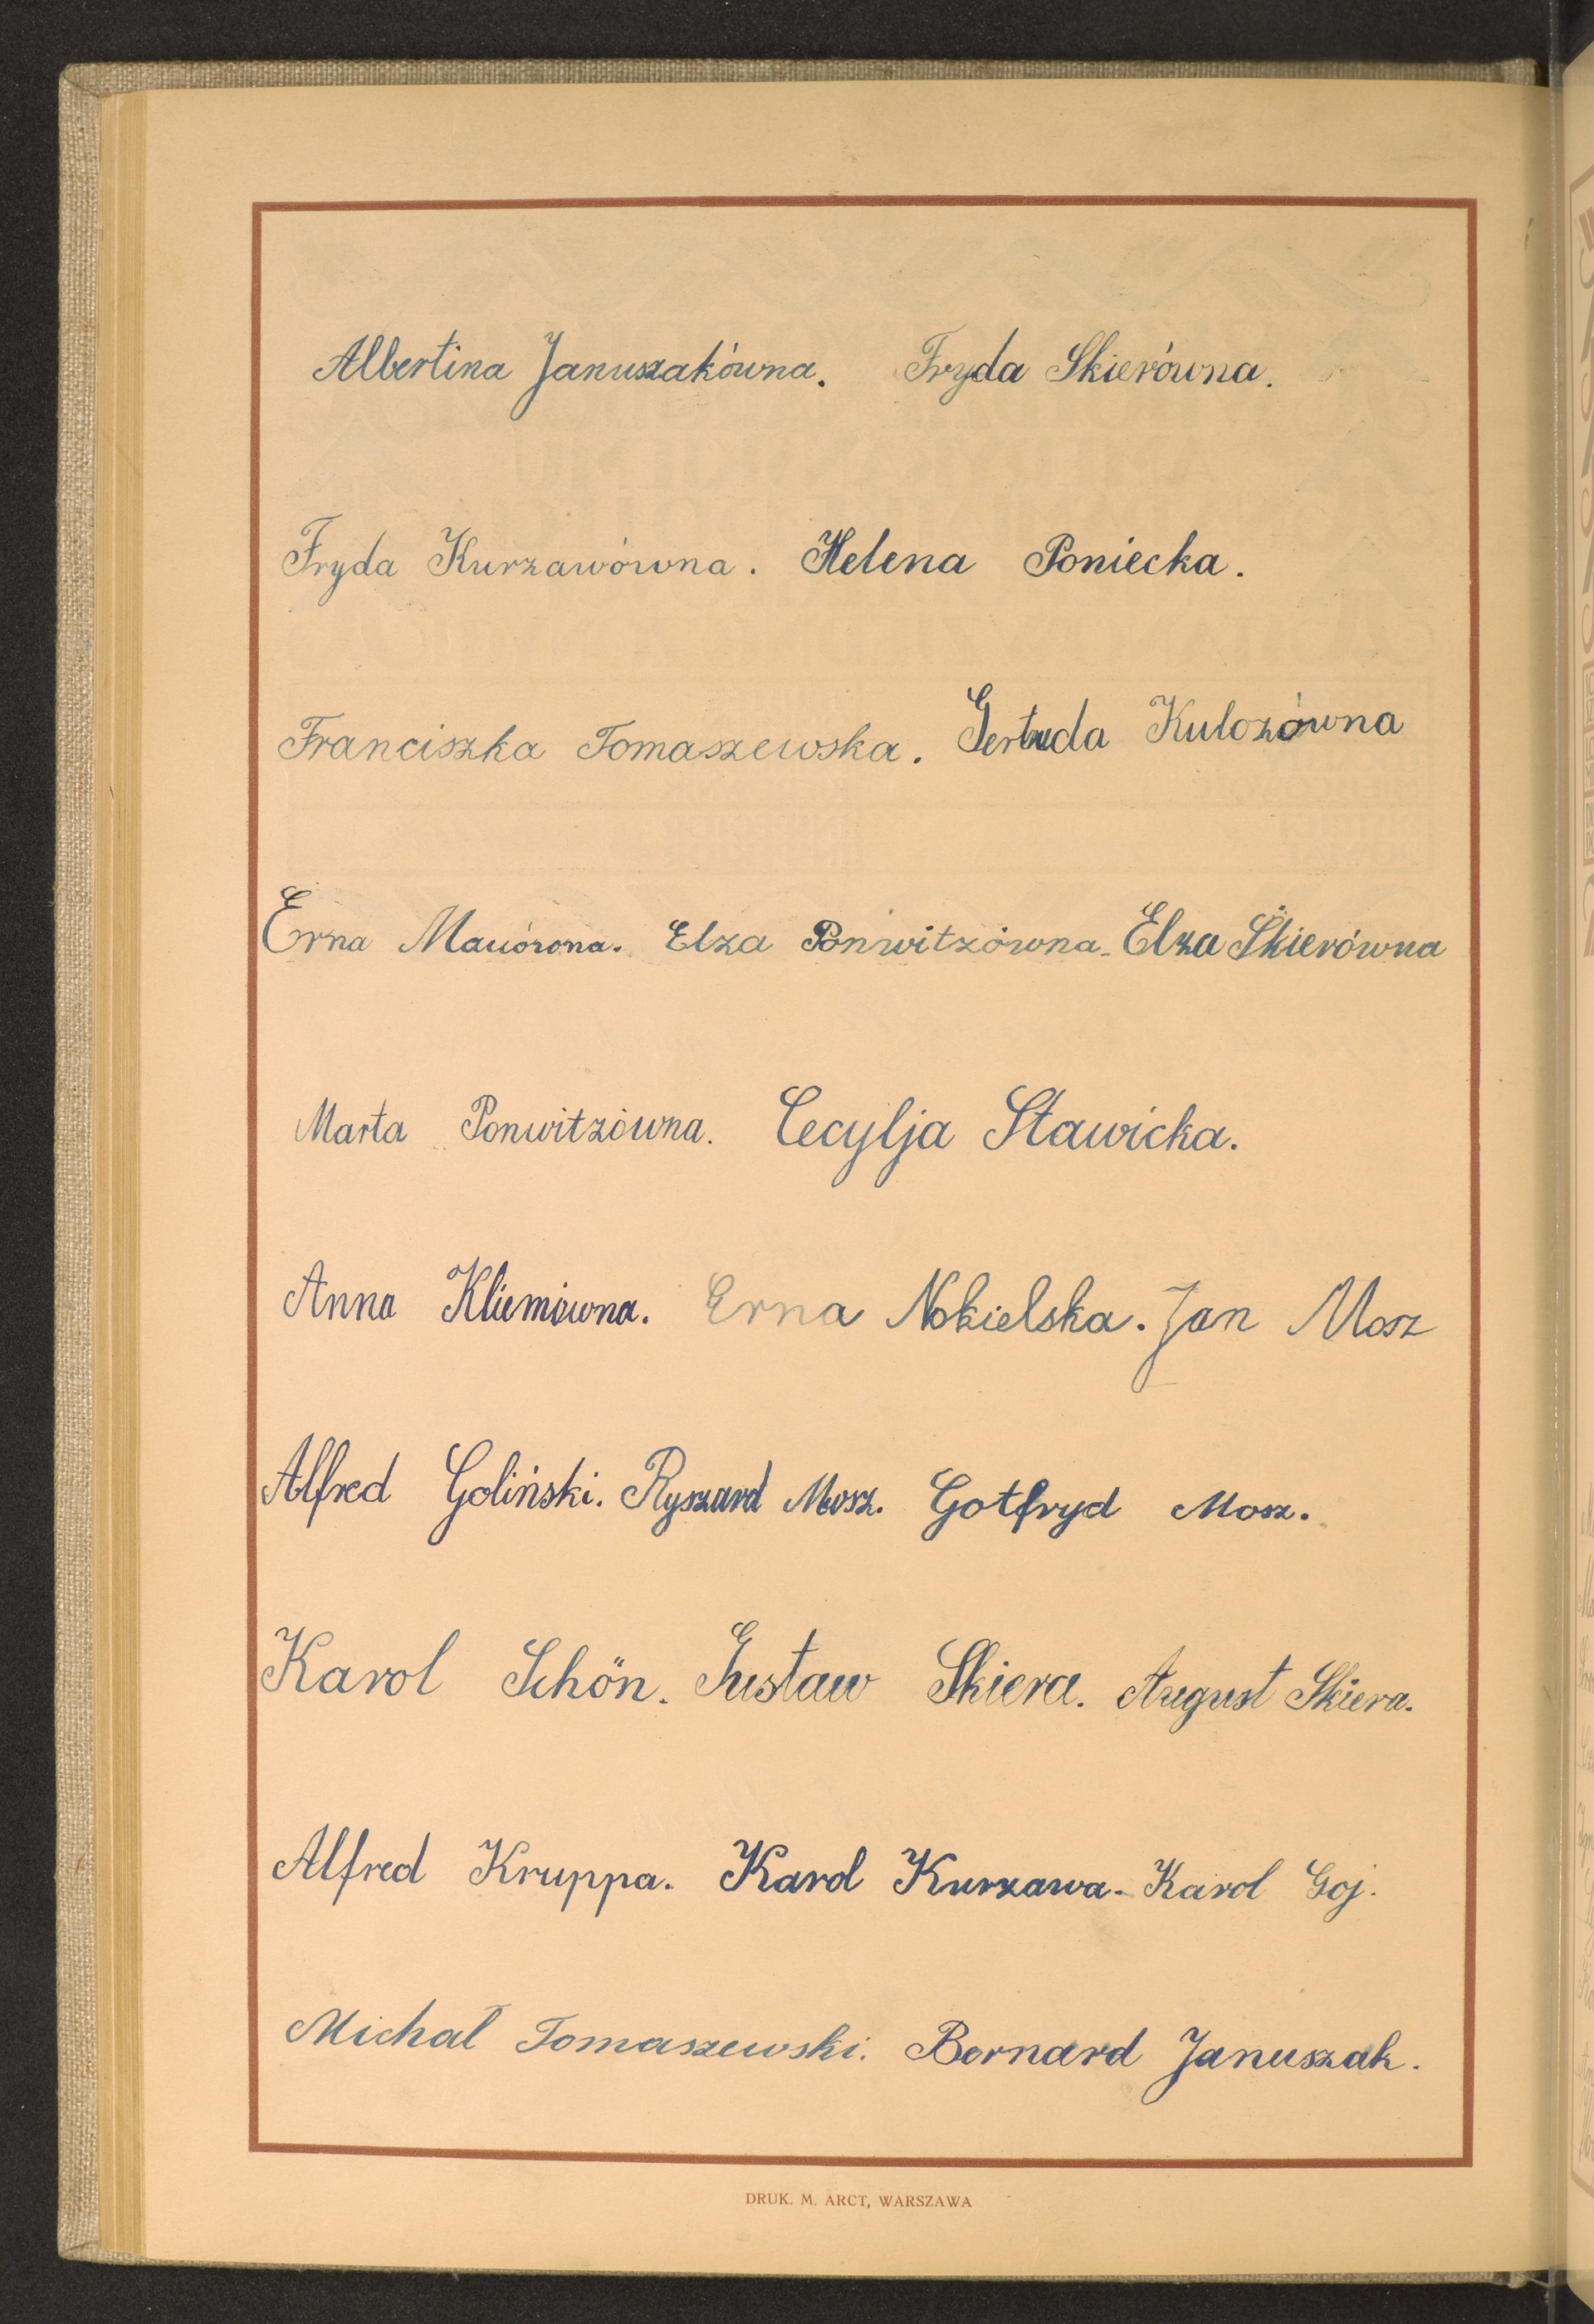 Albertina Januszakówna. Fryda Skierówna.
Fryda Kurzawówna. Helena Poniecka.
Franciszka Tomaszewska. Gertruda Kulozówna
Erna Elza Ponwitzówna. Elza Skierówna
Marta Ponwitzówna. Cecylja Stawicka.
Anna Kliemówna. Erna Nokielska. Jan Mosz
Alfred Goliński. Ryszard Mosz. Gotfryd Mosz.
Karol Schön. Gustaw Skiera. August Skiera.
Alfred Kruppa. Karol Kurzawa. Karol Goj.
Michał Tomaszewski. Bernard Januszak.
DRUK. M. ARCT, WARSZAWA